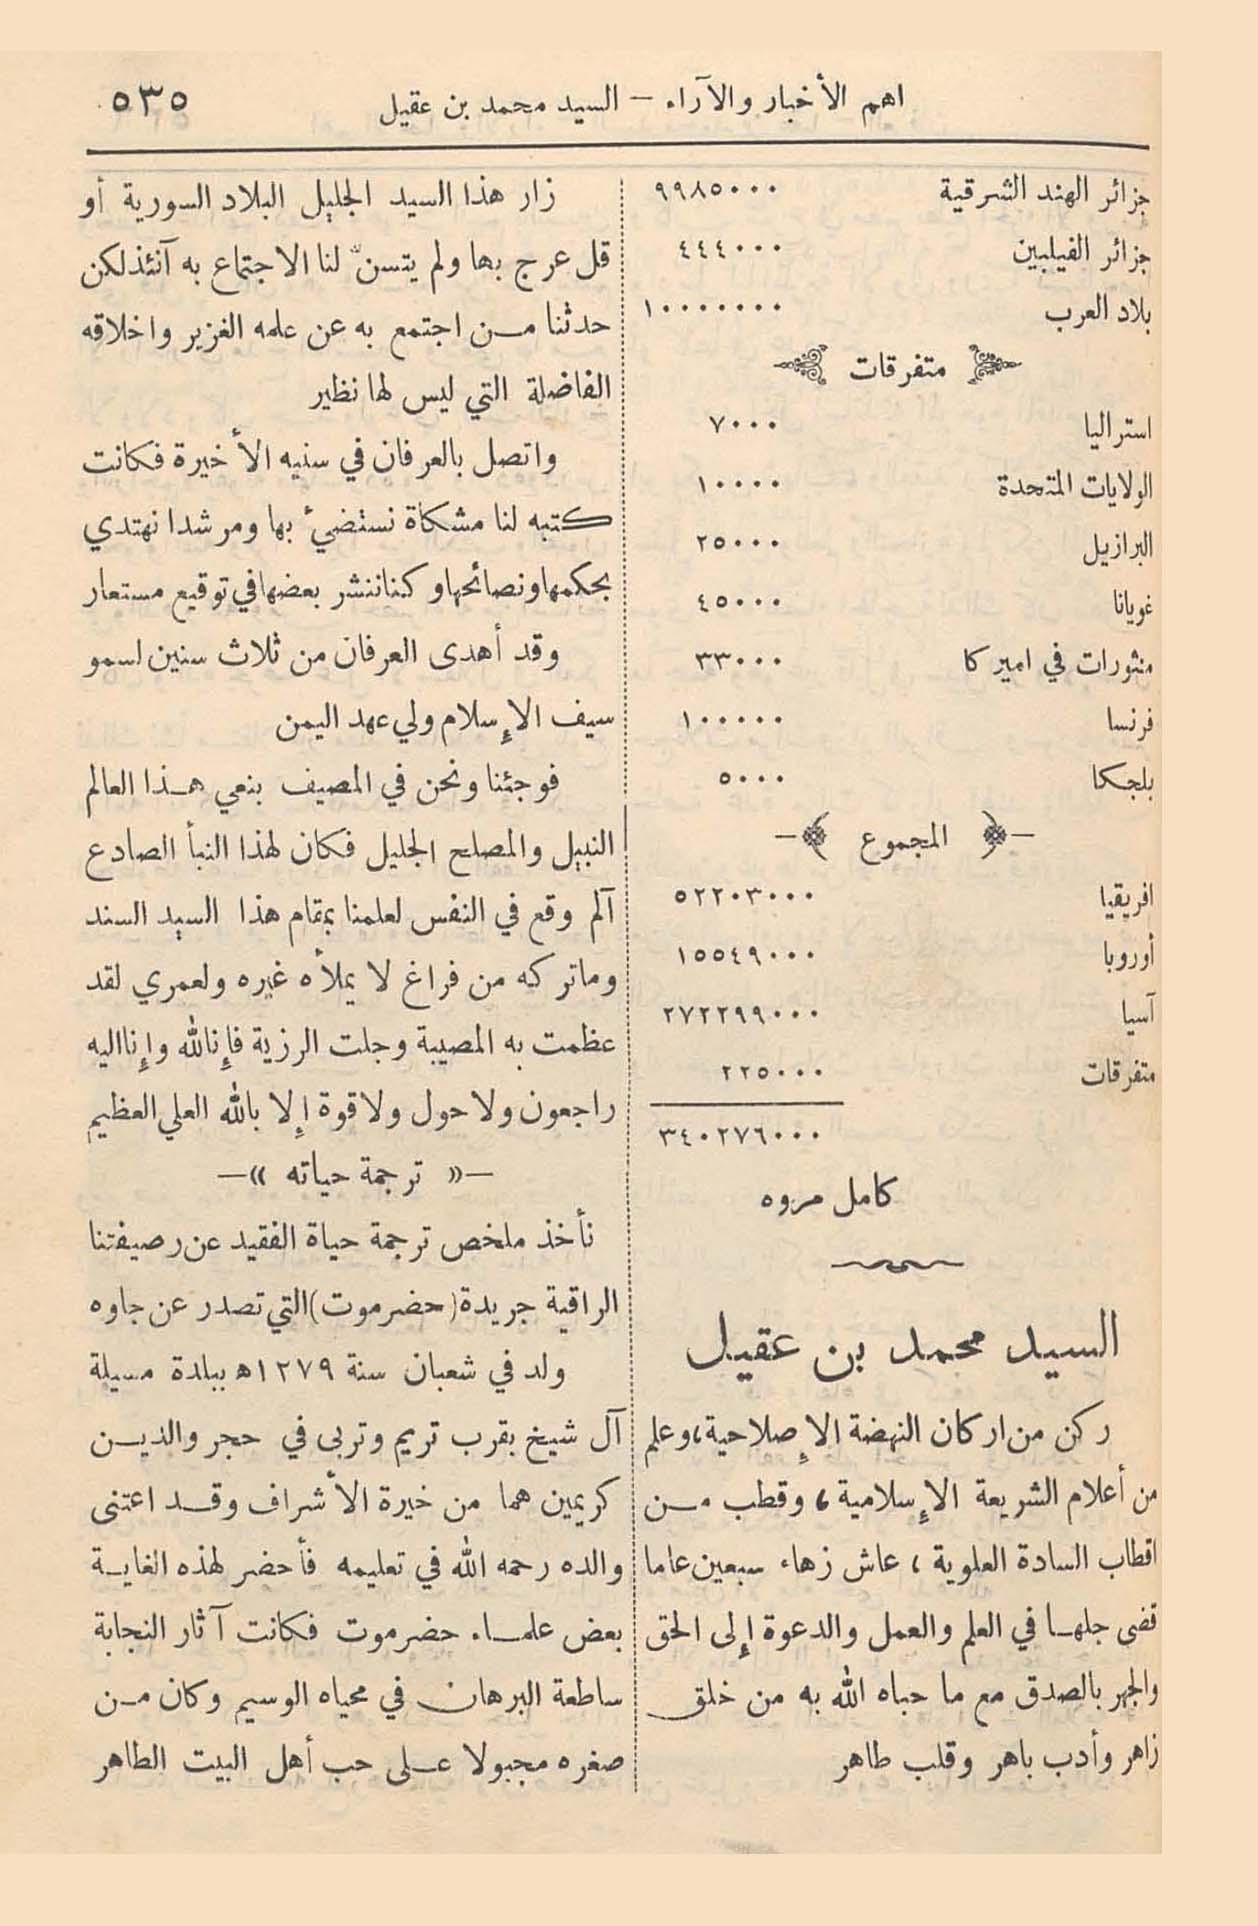 اهم الأخبار والآراء — السيد محمد بن عقيل
٥٣٥
جزائر الهند الشرقية ٩٩٨٥٠٠٠
جزائر الفيلبين ٤٤٤٠٠٠
بلاد العرب ١٠٠٠٠٠٠٠
متفرقات
استراليا ٧٠٠٠
الولايات المتحدة ١٠٠٠٠
البرازيل ٢٥٠٠٠
غويانا ٤٥٠٠٠
منثورات في اميركا ٣٣٠٠٠
فرنسا ١٠٠٠٠٠
بلجكا ٥٠٠٠
— المجموع —
افريقيا ٥٢٢٠٣٠٠٠
أوروبا ١٥٥٤٩٠٠٠
آسيا ٢٧٢٢٩٩٠٠٠
متفرقات ٢٢٥٠٠٠
٣٤٠٢٧٦٠٠٠
كامل مروه
السيد محمد بن عقيل
ركن من اركان النهضة الإصلاحية، وعلم
من أعلام الشريعة الإسلامية، وقطب مـن
اقطاب السادة العلوية، عاش زهاء سبعين عاما
قضى جلهـا في العلم والعمل والدعوة إلى الحق
والجهر بالصدق مع ما حباه الله به من خلق
زاهر وأدب باهر وقلب طاهر
زار هذا السيد الجليل البلاد السورية أو
قل عرج بها ولم يتسنّ لنا الاجتماع به آنئذ لكن
حدثنا مـن اجتمع به عن علمه الغزير واخلاقه
الفاضلة التي ليس لها نظير
واتصل بالعرفان في سنيه الأخيرة فكانت
كتبه لنا مشكاة نستضيء بها ومرشدا نهتدي
بحكمها ونصائحها وكنا ننشر بعضها في توقيع مستعار
وقد أهدى العرفان من ثلاث سنين لسمو
سيف الإسلام ولي عهد اليمن
فوجئنا ونحن في المصيف بنعي هـذا العالم
النبيل والمصلح الجليل فكان لهذا النبأ الصادع
آلم وقع في النفس لعلمنا بمقام هذا السيد السند
وما تركه من فراغ لا يملأه غيره ولعمري لقد
عظمت به المصيبة وجلت الرزية فإنا لله وإنا اليه
راجعون ولا حول ولا قوة إلا بالله العلي العظيم
—« ترجمة حياته »—
نأخذ ملخص ترجمة حياة الفقيد عن رصيفتنا
الراقية جريدة (حضرموت) التي تصدر عن جاوه
ولد في شعبان سنة ١٢٧٩ه‍ ببلدة مسيلة
آل شيخ بقرب تريم وتربى في حجر والديـن
كريمين هما من خيرة الأشراف وقـد اعتنى
والده رحمه الله في تعليمه فأحضر لهذه الغايـة
بعض علمـاء حضرموت فكانت آثار النجابة
ساطعة البرهان في محياه الوسيم وكان مـن
صغره مجبولا عـلى حب أهل البيت الطاهر